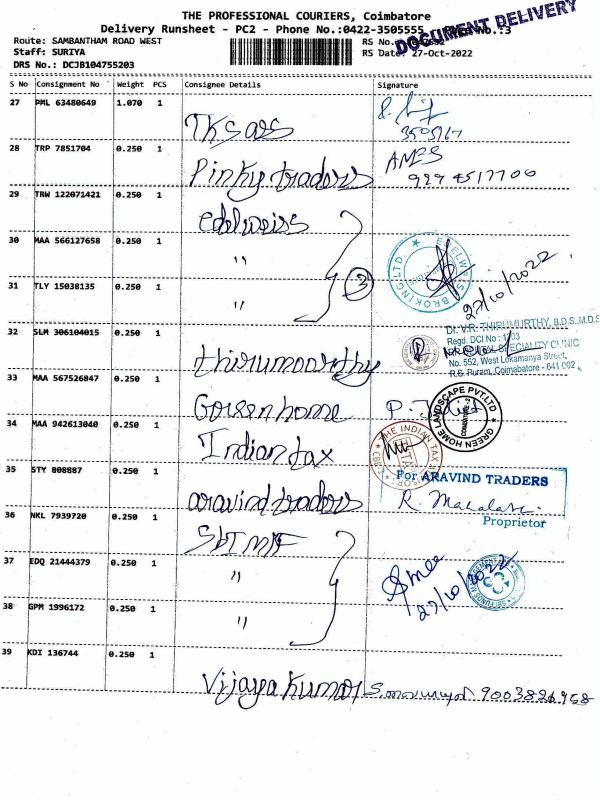 THE PROFESSIONAL COURIERS, Coimbatore
Delivery Runsheet - PC2 - Phone No.:0422-3505555
No.:3
DOCUMENT DELIVERY
Route: SAMBANTHAM ROAD WEST
RS No.
Staff: SURIYA
RS Date: 27-Oct-2022
DRS No.: DCJB104755203
S No Consignment No Weight PCS Consignee Details Signature
27 PML 63480649 1.070 1 TKS
28 TRP 7851704 0.250 1 Pinky traders
29 TRW 122071421 0.250 1 edelweiss
30 MAA 566127658 0.250 1 "
EDELWEISS BROKING LTD
27/10/2022
31 TLY 15038135 0.250 1 "
3
32 SLM 306104015 0.250 1 thirumoorthy
Dr. V.R. THIRUMURTHY, B.D.S.,M.D.S
Regd. DCI No :
SPECIALITY CLINIC
No. 552, West Lokamanya Street,
R.S. Puram, Coimbatore - 641 002
33 MAA 567526847 0.250 1 Green home
GREEN HOME LANDSCAPE PVT LTD
34 MAA 942613040 0.250 1 Indian tax
THE INDIAN TAX
35 STY 808887 0.250 1 aravind traders
For ARAVIND TRADERS
Proprietor
36 NKL 7939720 0.250 1 SBI MF
37 EDQ 21444379 0.250 1 "
27/10/2022
38 GPM 1996172 0.250 1 "
39 KDI 136744 0.250 1 Vijaya kumar